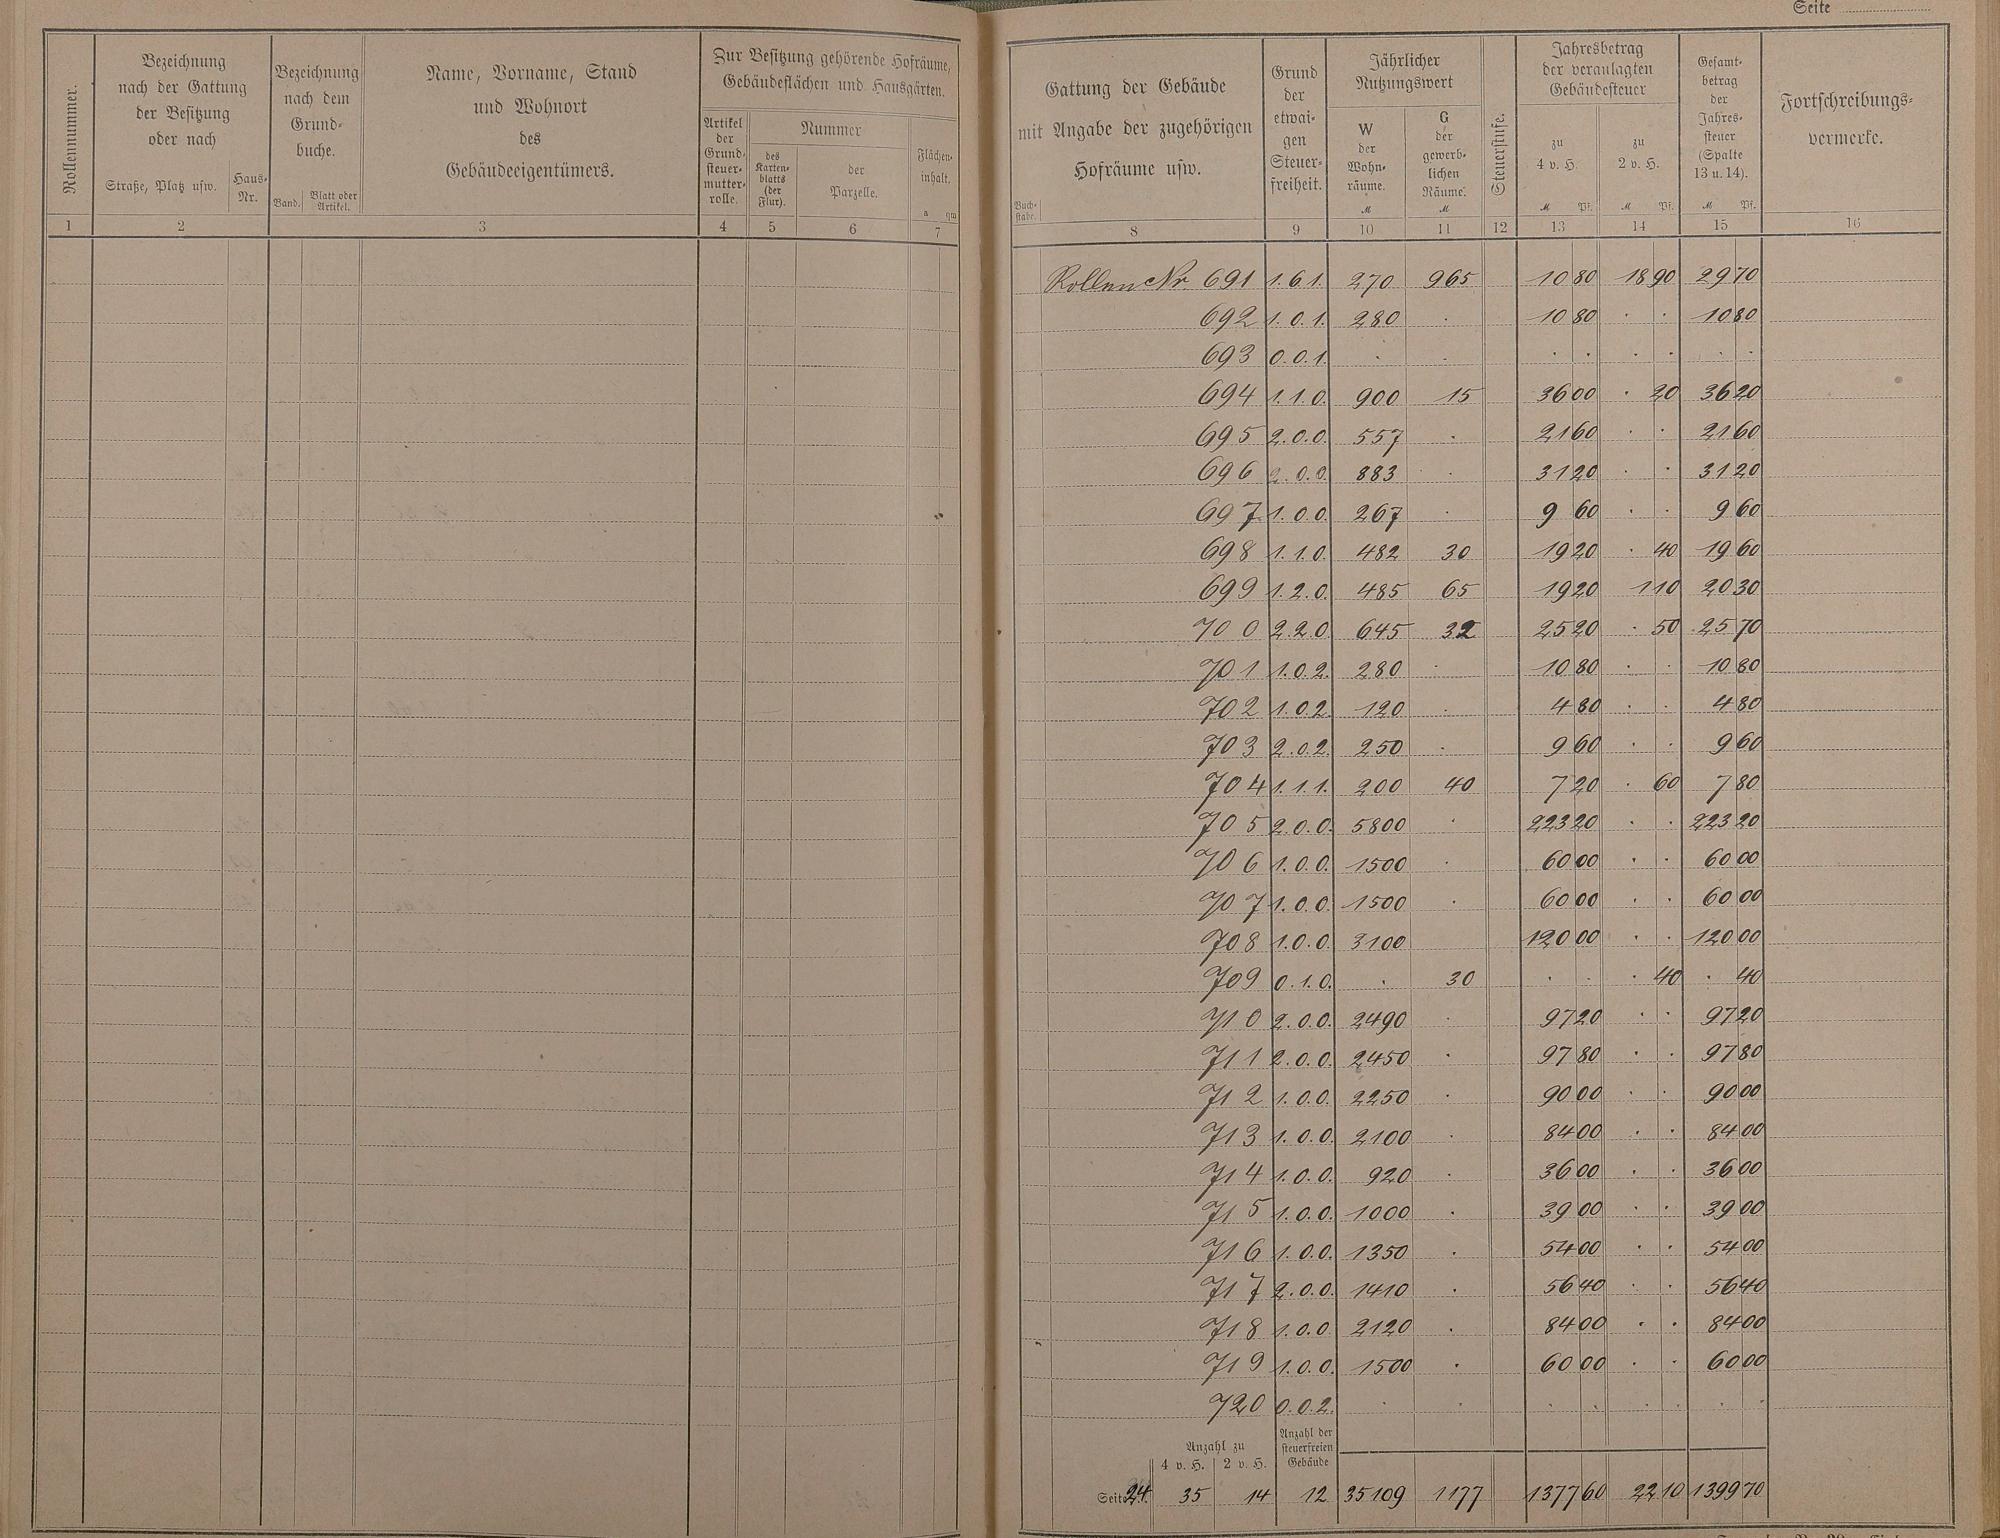 Seite
Rollennummer.
Bezeichnung
nach der Gattung
der Besitzung
oder nach
Straße, Platz usw.
Haus-
Nr.
Bezeichnung
nach dem
Grund-
buche.
Band.
Blatt oder
Artikel.
Name, Vorname, Stand
und Wohnort
des
Gebäudeeigentümers.
Zur Besitzung gehörende Hofräume,
Gebäudeflächen und Hausgärten.
Artikel
der
Grund-
steuer-
mutter-
rolle.
Nummer
des
Karten-
blatts
(der
Flur).
der
Parzelle.
Flächen-
inhalt.
a qm
1 2 3 4 5 6 7
Buch-
stabe.
Gattung der Gebäude
mit Angabe der zugehörigen
Hofräume usw.
Grund
der
etwai-
gen
Steuer-
freiheit.
Jährlicher
Nutzungswert
W
der
Wohn-
räume.
M
G
der
gewerb-
lichen
Räume.
M
Steuerstufe.
Jahresbetrag
der veranlagten
Gebäudesteuer
zu
4 v. H.
M Pf.
zu
2 v. H.
M Pf.
Gesamt-
betrag
der
Jahres-
steuer
(Spalte
13 u. 14).
M Pf.
Fortschreibungs-
vermerke.
8 9 10 11 12 13 14 15 16
Rollen Nr. 691 1.6.1. 270 965 10 80 18 90 29 70
692 1.0.1. 280 . 10 80 . . 10 80
693 0.0.1. . . . . . . . .
694 1.1.0. 900 15 36 00 . 20 36 20
695 2.0.0. 557 . 21 60 . . 21 60
696 2.0.0. 883 . 31 20 . . 31 20
697 1.0.0. 267 . 9 60 . . 9 60
698 1.1.0. 482 30 19 20 . 40 19 60
699 1.2.0. 485 65 19 20 1 10 20 30
700 2.2.0. 645 32 25 20 . 50 25 70
701 1.0.2. 280 . 10 80 . . 10 80
702 1.0.2. 120 . 4 80 . . 4 80
703 2.0.2. 250 . 9 60 . . 9 60
704 1.1.1. 200 40 7 20 . 60 7 80
705 2.0.0. 5800 . 223 20 . . 223 20
706 1.0.0. 1500 . 60 00 . . 60 00
707 1.0.0. 1500 . 60 00 . . 60 00
708 1.0.0. 3100 120 00 . . 120 00
709 0.1.0. . 30 . . . 40 . 40
710 2.0.0. 2490 . 97 20 . . 97 20
711 2.0.0. 2450 . 97 80 . . 97 80
712 1.0.0. 2250 . 90 00 . . 90 00
713 1.0.0. 2100 . 84 00 . . 84 00
714 1.0.0. 920 . 36 00 . . 36 00
715 1.0.0. 1000 . 39 00 . . 39 00
716 1.0.0. 1350 . 54 00 . . 54 00
717 2.0.0. 1410 . 56 40 . . 56 40
718 1.0.0. 2120 . 84 00 . . 84 00
719 1.0.0. 1500 . 60 00 . . 60 00
720 0.0.2. . . . . . . . .
Anzahl zu
4 v. H. 2 v. H.
Anzahl der
steuerfreien
Gebäude
Seite 24. 35 14 12 35109 1177 1377 60 22 10 1399 70